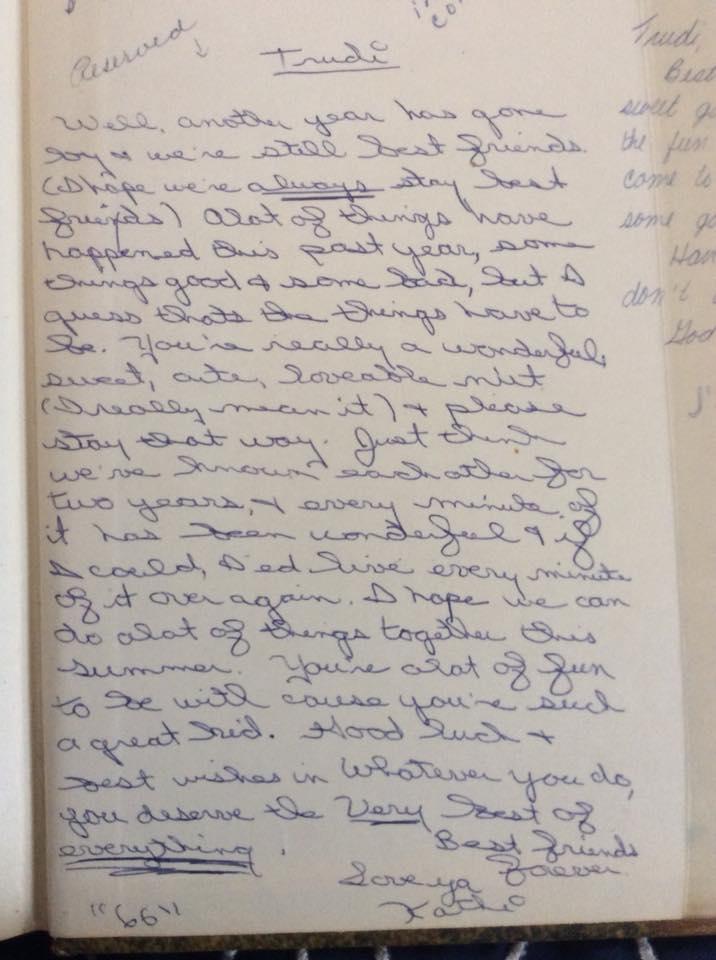 Reserved ↓
Trudi
Well, another year has gone
by & we're still best friends.
(I hope we're always stay best
friends) Alot of things have
happened this past year, some
things good & some bad, but I
guess thats the things have to
be. You're really a wonderful,
sweet, cute, loveable nut
(I really mean it) & please
stay that way. Just think
we've known each other for
two years, & every minute of
it has been wonderful & if
I could, I'ed live every minute
of it over again. I hope we can
do alot of things together this
summer. You're alot of fun
to be with cause you're such
a great kid. Good luck &
best wishes in whatever you do,
you deserve the very best of
everything.
Best friends
forever
Love ya
Kathi
"66"
Trudi,
Best
sweet
the fun
come to
some
don't